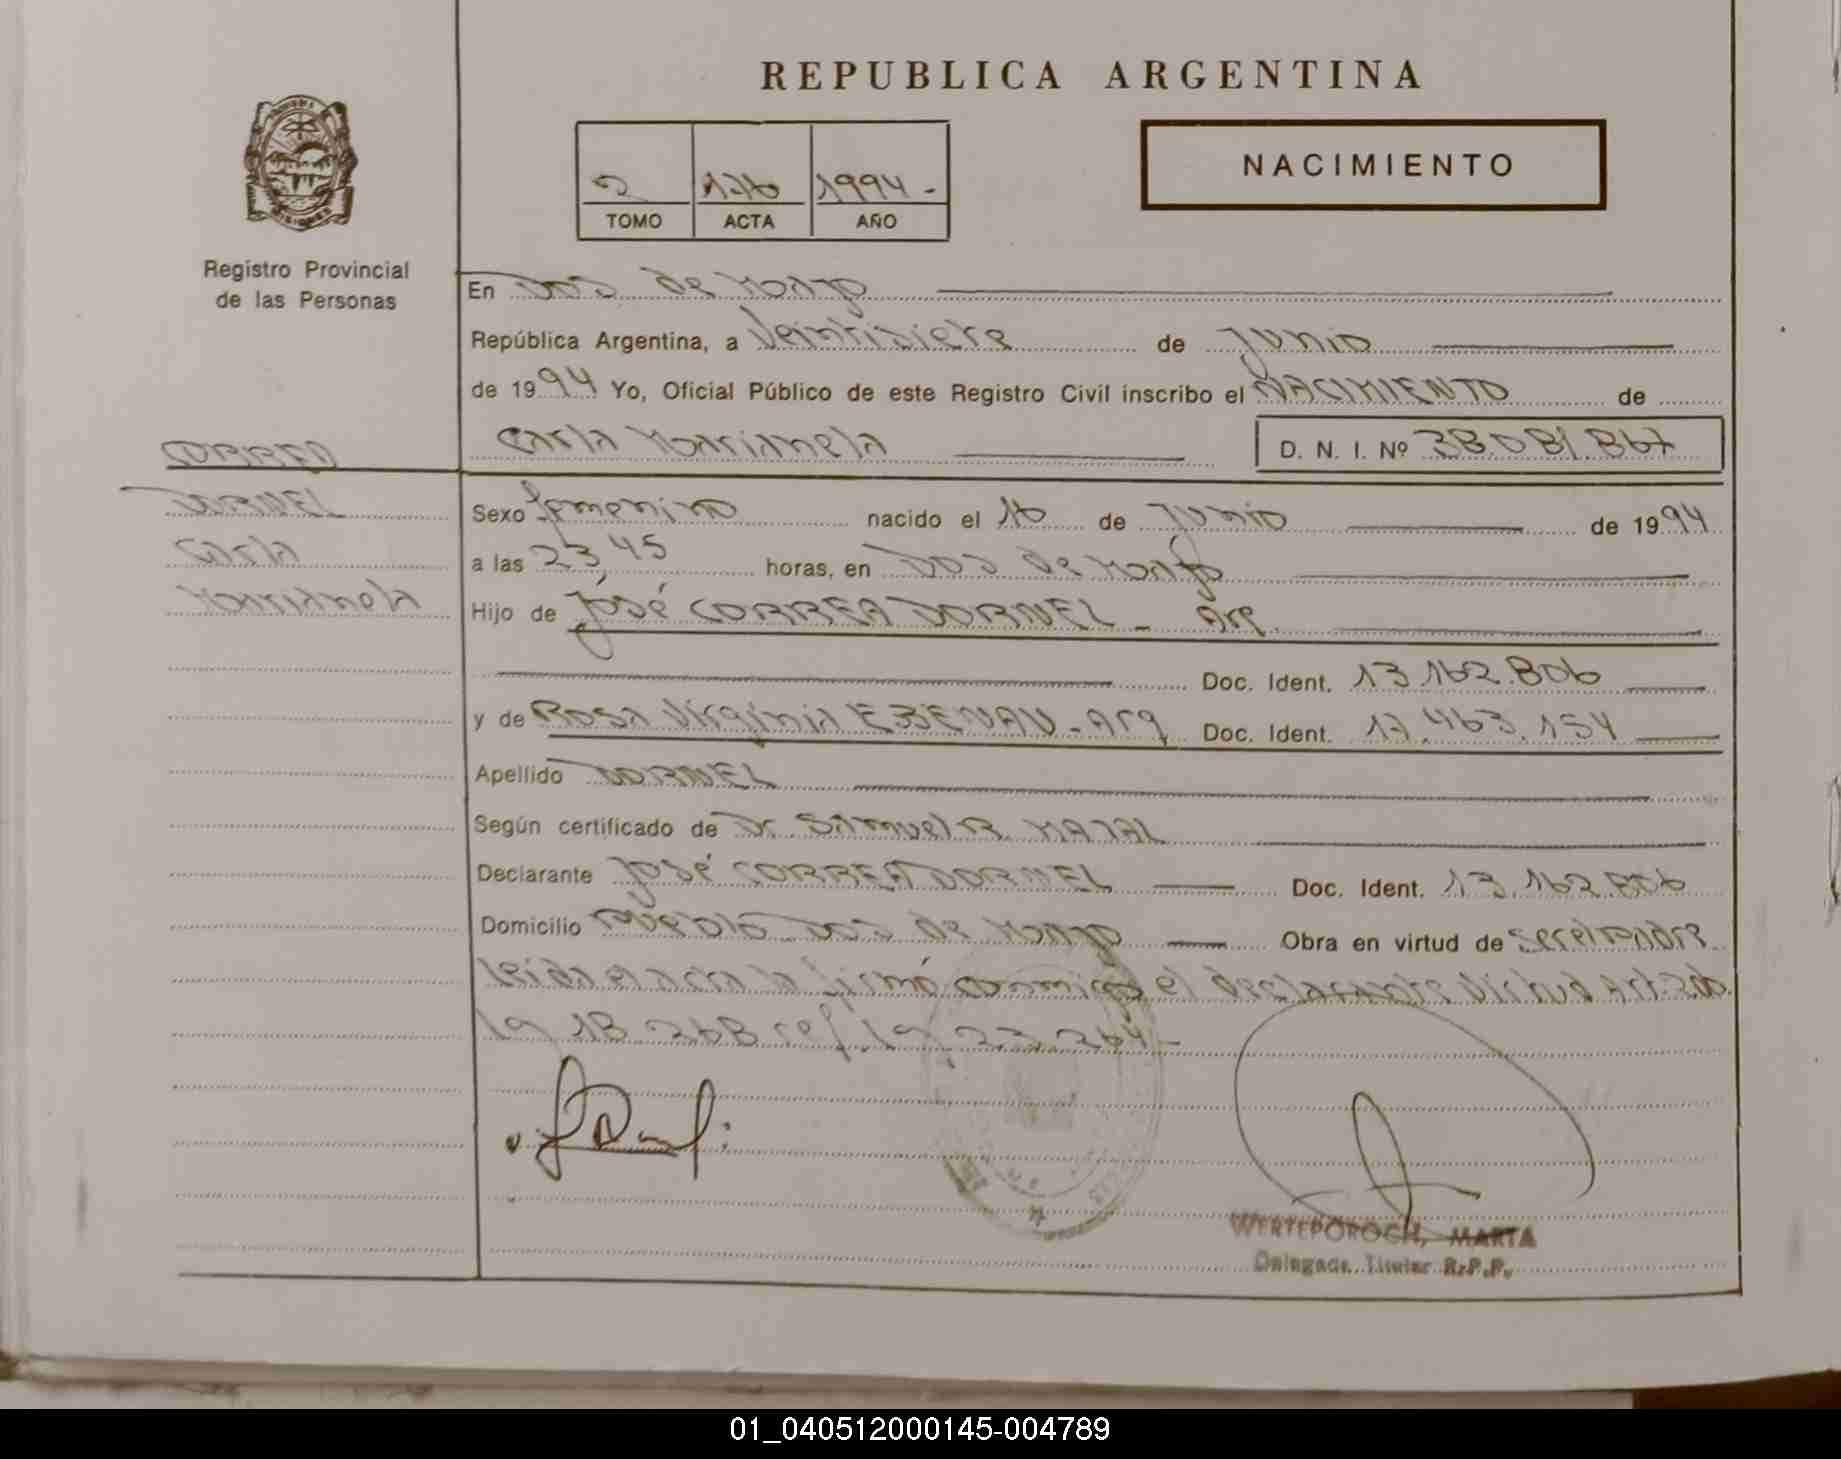 REPUBLICA ARGENTINA
NACIMIENTO
2 176 1994-
TOMO ACTA AÑO
Registro Provincial
de las Personas
En Dos de Mayo
República Argentina, a Veintisiete de Junio
de 1994 Yo, Oficial Público de este Registro Civil inscribo el NACIMIENTO de
Carla Marianela D. N. I. Nº 38.081.867
CORREA
DORNEL
Carla
Marianela
Sexo femenino nacido el 16 de Junio de 1994
a las 23,45 horas, en Dos de Mayo
Hijo de José CORREA DORNEL - Arg.
Doc. Ident. 13.162.806
y de Rosa Virginia - Arg Doc. Ident. 17.463.154
Apellido DORNEL
Según certificado de Dr. Samuel R.
Declarante José CORREA DORNEL Doc. Ident. 13.162.806
Domicilio Pueblo Dos de Mayo Obra en virtud de ser el padre
leída el acta la firmó conmigo el declarante Virtud Art.
ly 18.268 ref. ly 23.264-
WERTEPOROCH, MARTA
Delegada Titular R.P.P.
01_040512000145-004789